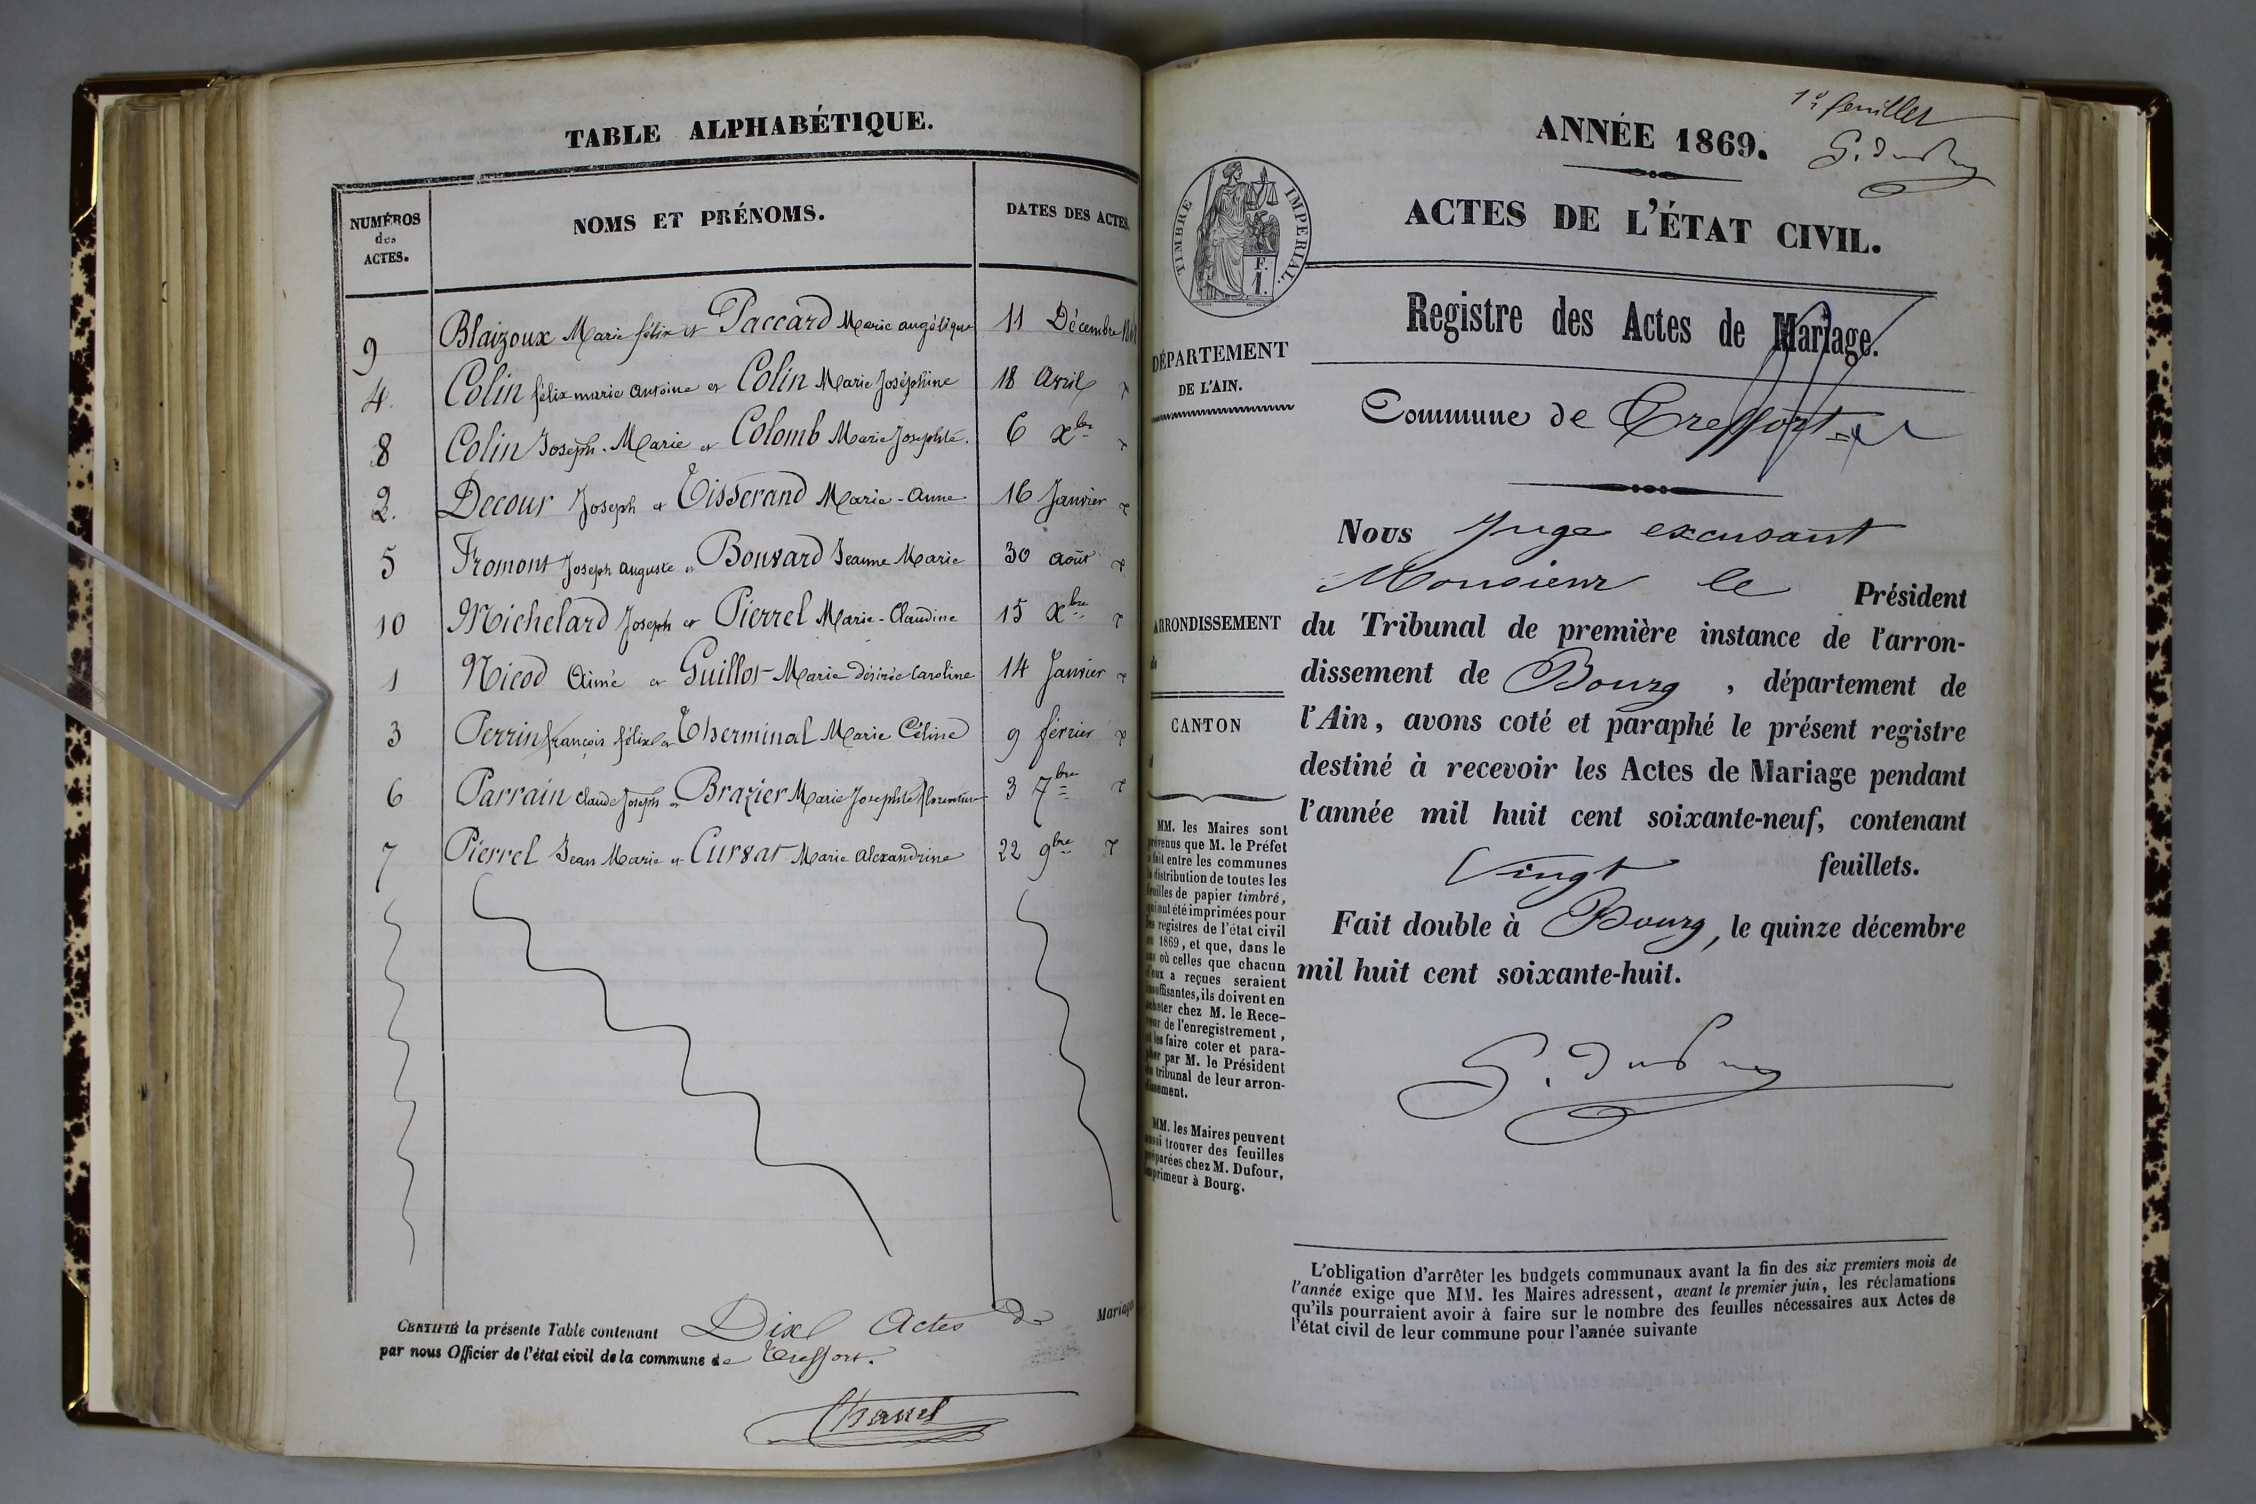 TABLE ALPHABÉTIQUE.
NUMÉROS
des
ACTES.
NOMS ET PRÉNOMS.
DATES DES ACTES.
9 Blaizoux Marie félix et Paccard Marie angélique 11 Décembre
4. Colin félix marie Antoine et Colin Marie Joséphine 18 Avril
8 Colin Joseph-Marie et Colomb Marie Josephte. 6 Xbre
2. Decour Joseph et Tisserand Marie-Anne 16 Janvier
5 Fromont Joseph Auguste et Bouvard Jeanne Marie 30 août
10 Michelard Joseph et Pierrel Marie-Claudine 15 Xbre
1 Nicod Aimé et Guillot Marie désirée Caroline 14 Janvier
3 Perrin françois félix et Therminal Marie Céline 9 février
6 Parrain Claude Joseph et Brazier Marie Josephte 3 7bre
7 Pierrel Jean Marie et Curvat Marie Alexandrine 22 9bre
CERTIFIÉ la présente Table contenant Dix Actes de Mariage
par nous Officier de l'état civil de la commune de Treffort.
Chanel
1er feuillet
ANNÉE 1869.
TIMBRE IMPERIAL.
F.
1.
ACTES DE L'ÉTAT CIVIL.
Registre des Actes de Mariage.
DÉPARTEMENT
DE L'AIN.
Commune de Treffort
Nous Juge excusant
Monsieur le Président
du Tribunal de première instance de l'arron-
dissement de Bourg, département de
l'Ain, avons coté et paraphé le présent registre
destiné à recevoir les Actes de Mariage pendant
l'année mil huit cent soixante-neuf, contenant
Vingt feuillets.
Fait double à Bourg, le quinze décembre
mil huit cent soixante-huit.
ARRONDISSEMENT
CANTON
MM. les Maires sont
prévenus que M. le Préfet
a fait entre les communes
la distribution de toutes les
feuilles de papier timbré,
qui ont été imprimées pour
les registres de l'état civil
en 1869, et que, dans le
cas où celles que chacun
d'eux a reçues seraient
insuffisantes, ils doivent en
acheter chez M. le Rece-
veur de l'enregistrement,
et les faire coter et para-
pher par M. le Président
du tribunal de leur arron-
dissement.
MM. les Maires peuvent
aussi trouver des feuilles
préparées chez M. Dufour,
imprimeur à Bourg.
L'obligation d'arrêter les budgets communaux avant la fin des six premiers mois de
l'année exige que MM. les Maires adressent, avant le premier juin, les réclamations
qu'ils pourraient avoir à faire sur le nombre des feuilles nécessaires aux Actes de
l'état civil de leur commune pour l'année suivante